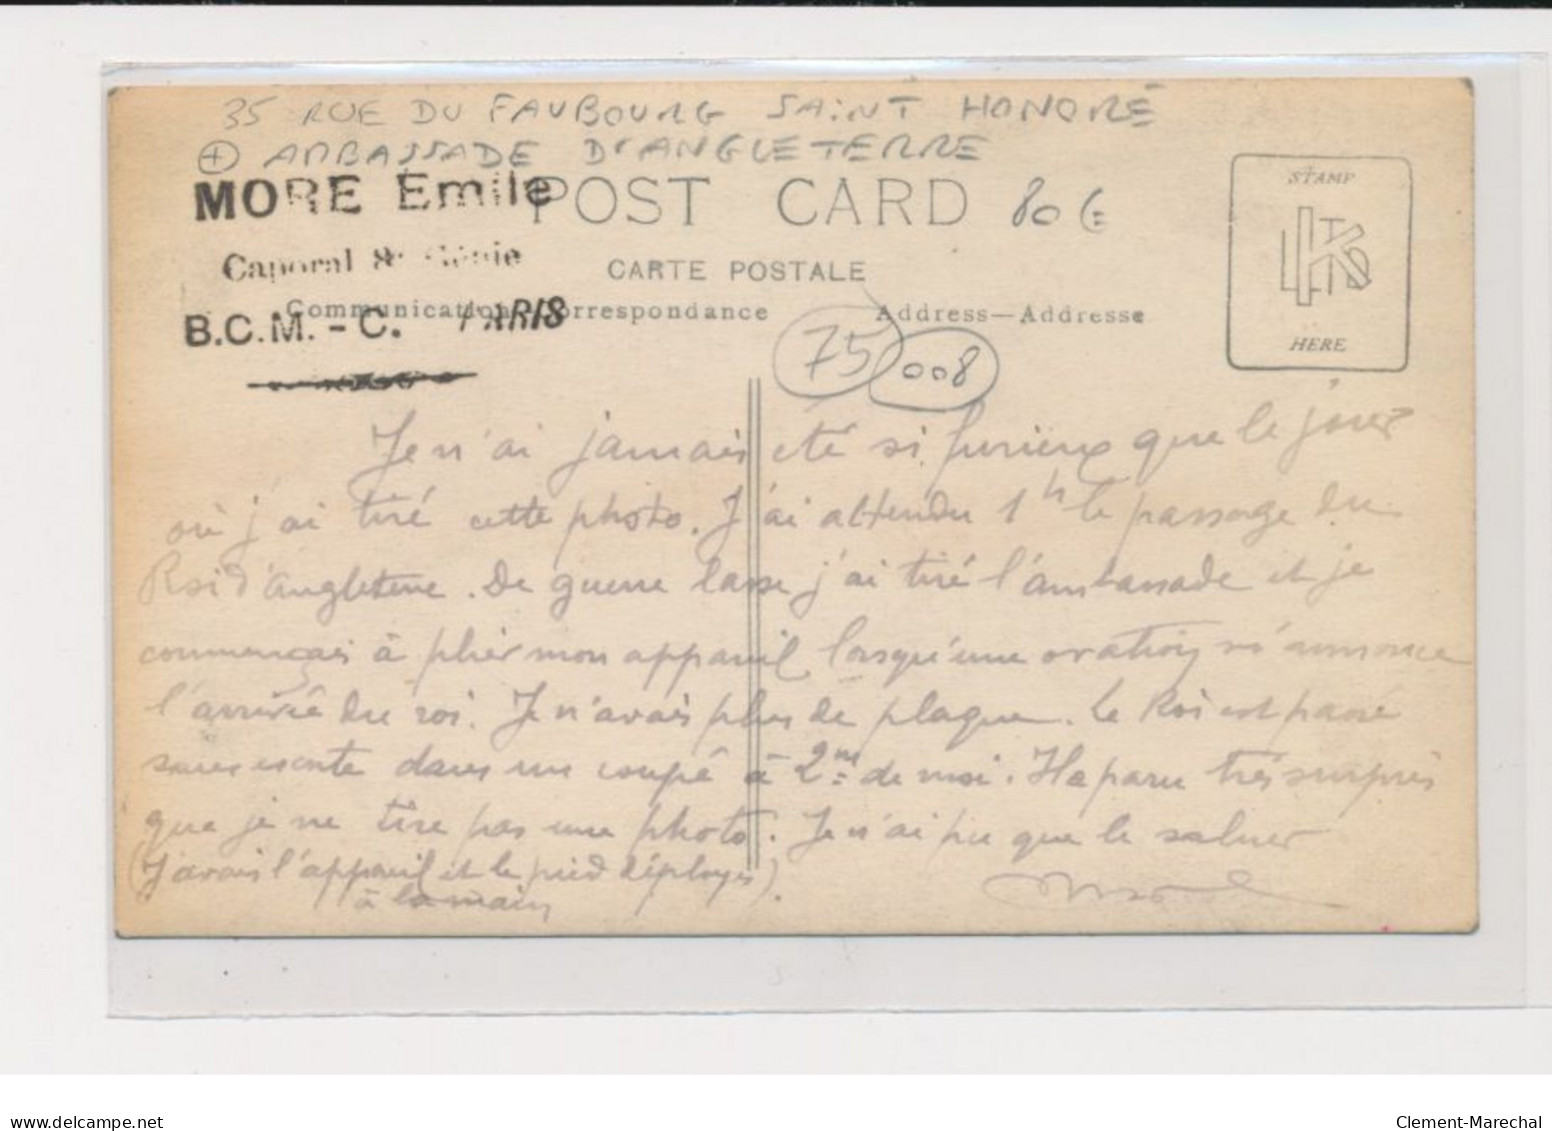 35 RUE DU FAUBOURG SAINT HONORÉ
+ AMBASSADE D'ANGLETERRE
MORE Emile
POST CARD 80 €
STAMP
Caporal 8e Génie
CARTE POSTALE
Communication Correspondance
Address—Addresse
B.C.M. - C. PARIS
75 008
HERE
Je n'ai jamais été si furieux que le jour
où j'ai tiré cette photo. J'ai attendu 1h le passage du
Roi d'Angleterre. De guerre lasse j'ai tiré l'ambassade et je
commençais à plier mon appareil lorsqu'une ovation m'annonce
l'arrivée du roi. Je n'avais plus de plaque. Le Roi est passé
sans escorte dans un coupé à 2m de moi. Il a paru très surpris
que je ne tire pas une photo. Je n'ai pu que le saluer
(J'avais l'appareil et le pied déployés).
à la main
delcampe.net
Clement-Marechal